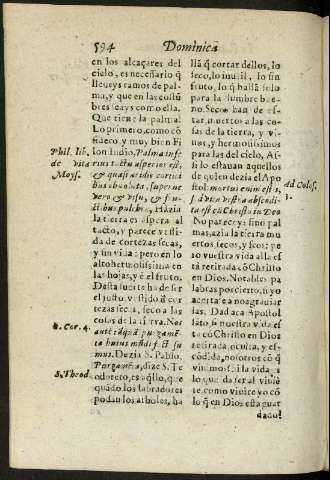 594 Dominica
en los alcaçares del
cielo, es necessario q̃
lleueys ramos de pal-
ma, y que en las costũ
bres seays como ella.
Que tiene la palma?
Lo primero, como cõ
fidero, y muy bien Fi
lon Iudio, Palma infe
rius tactu asperior est,
& quasi
obsoluta, superne
vero & visu, & fru-
ctibus pulchra, Hàzia
la tierra es aspera al
tacto, y parece vesti-
da de cortezas secas,
y sin vida: pero en lo
alto hermosissima en
las hojas, y el fruto.
Desta suerte ha de ser
el justo vestido de cor
tezas secas, seco a las
cosas de la tierra. Nos
autẽ
huius mũdi
mus. Dezia S. Pablo.
dize S. Te
odoreto, es aq̃llo, que
quãdo los labradores
podan los arboles, ha
Phil. lib.
de vita
Moys.
1. Cor. 4.
S. Theod.
llã q̃ cortar dellos, lo
seco, lo inutil, lo sin
fruto, lo q̃ hallã solo
para la lumbre bue-
no. Secos han de es-
tar, muertos a las co-
sas de la tierra, y vi-
uos, y hermosissimos
para las del cielo, As-
si lo estauan aquellos
de quien dezia el Apo
stol: mortui enim estis,
& vita vestra abscondi-
ta est cũ Christo in Deo
No parecey: sino pal
mas, azia la tierra mu
ertos secos, y feos: pe
ro vuestra vida alla es
tà retirada cõ Christo
en Dios. Notables pa
labras por cierto, si yo
acertara a no agrauiar
las. Dad aca Apostol
sãto, si nuestra vida es
ta cũ Christo en Dios
retirada, oculta, y es-
cõdida, nosotros cõ q̃
viuimos? si la vida es
la que da ser al viuiẽ
te, como viuire yo cõ
lo q̃ en Dios està guar
dado?
Ad Colos.
3.